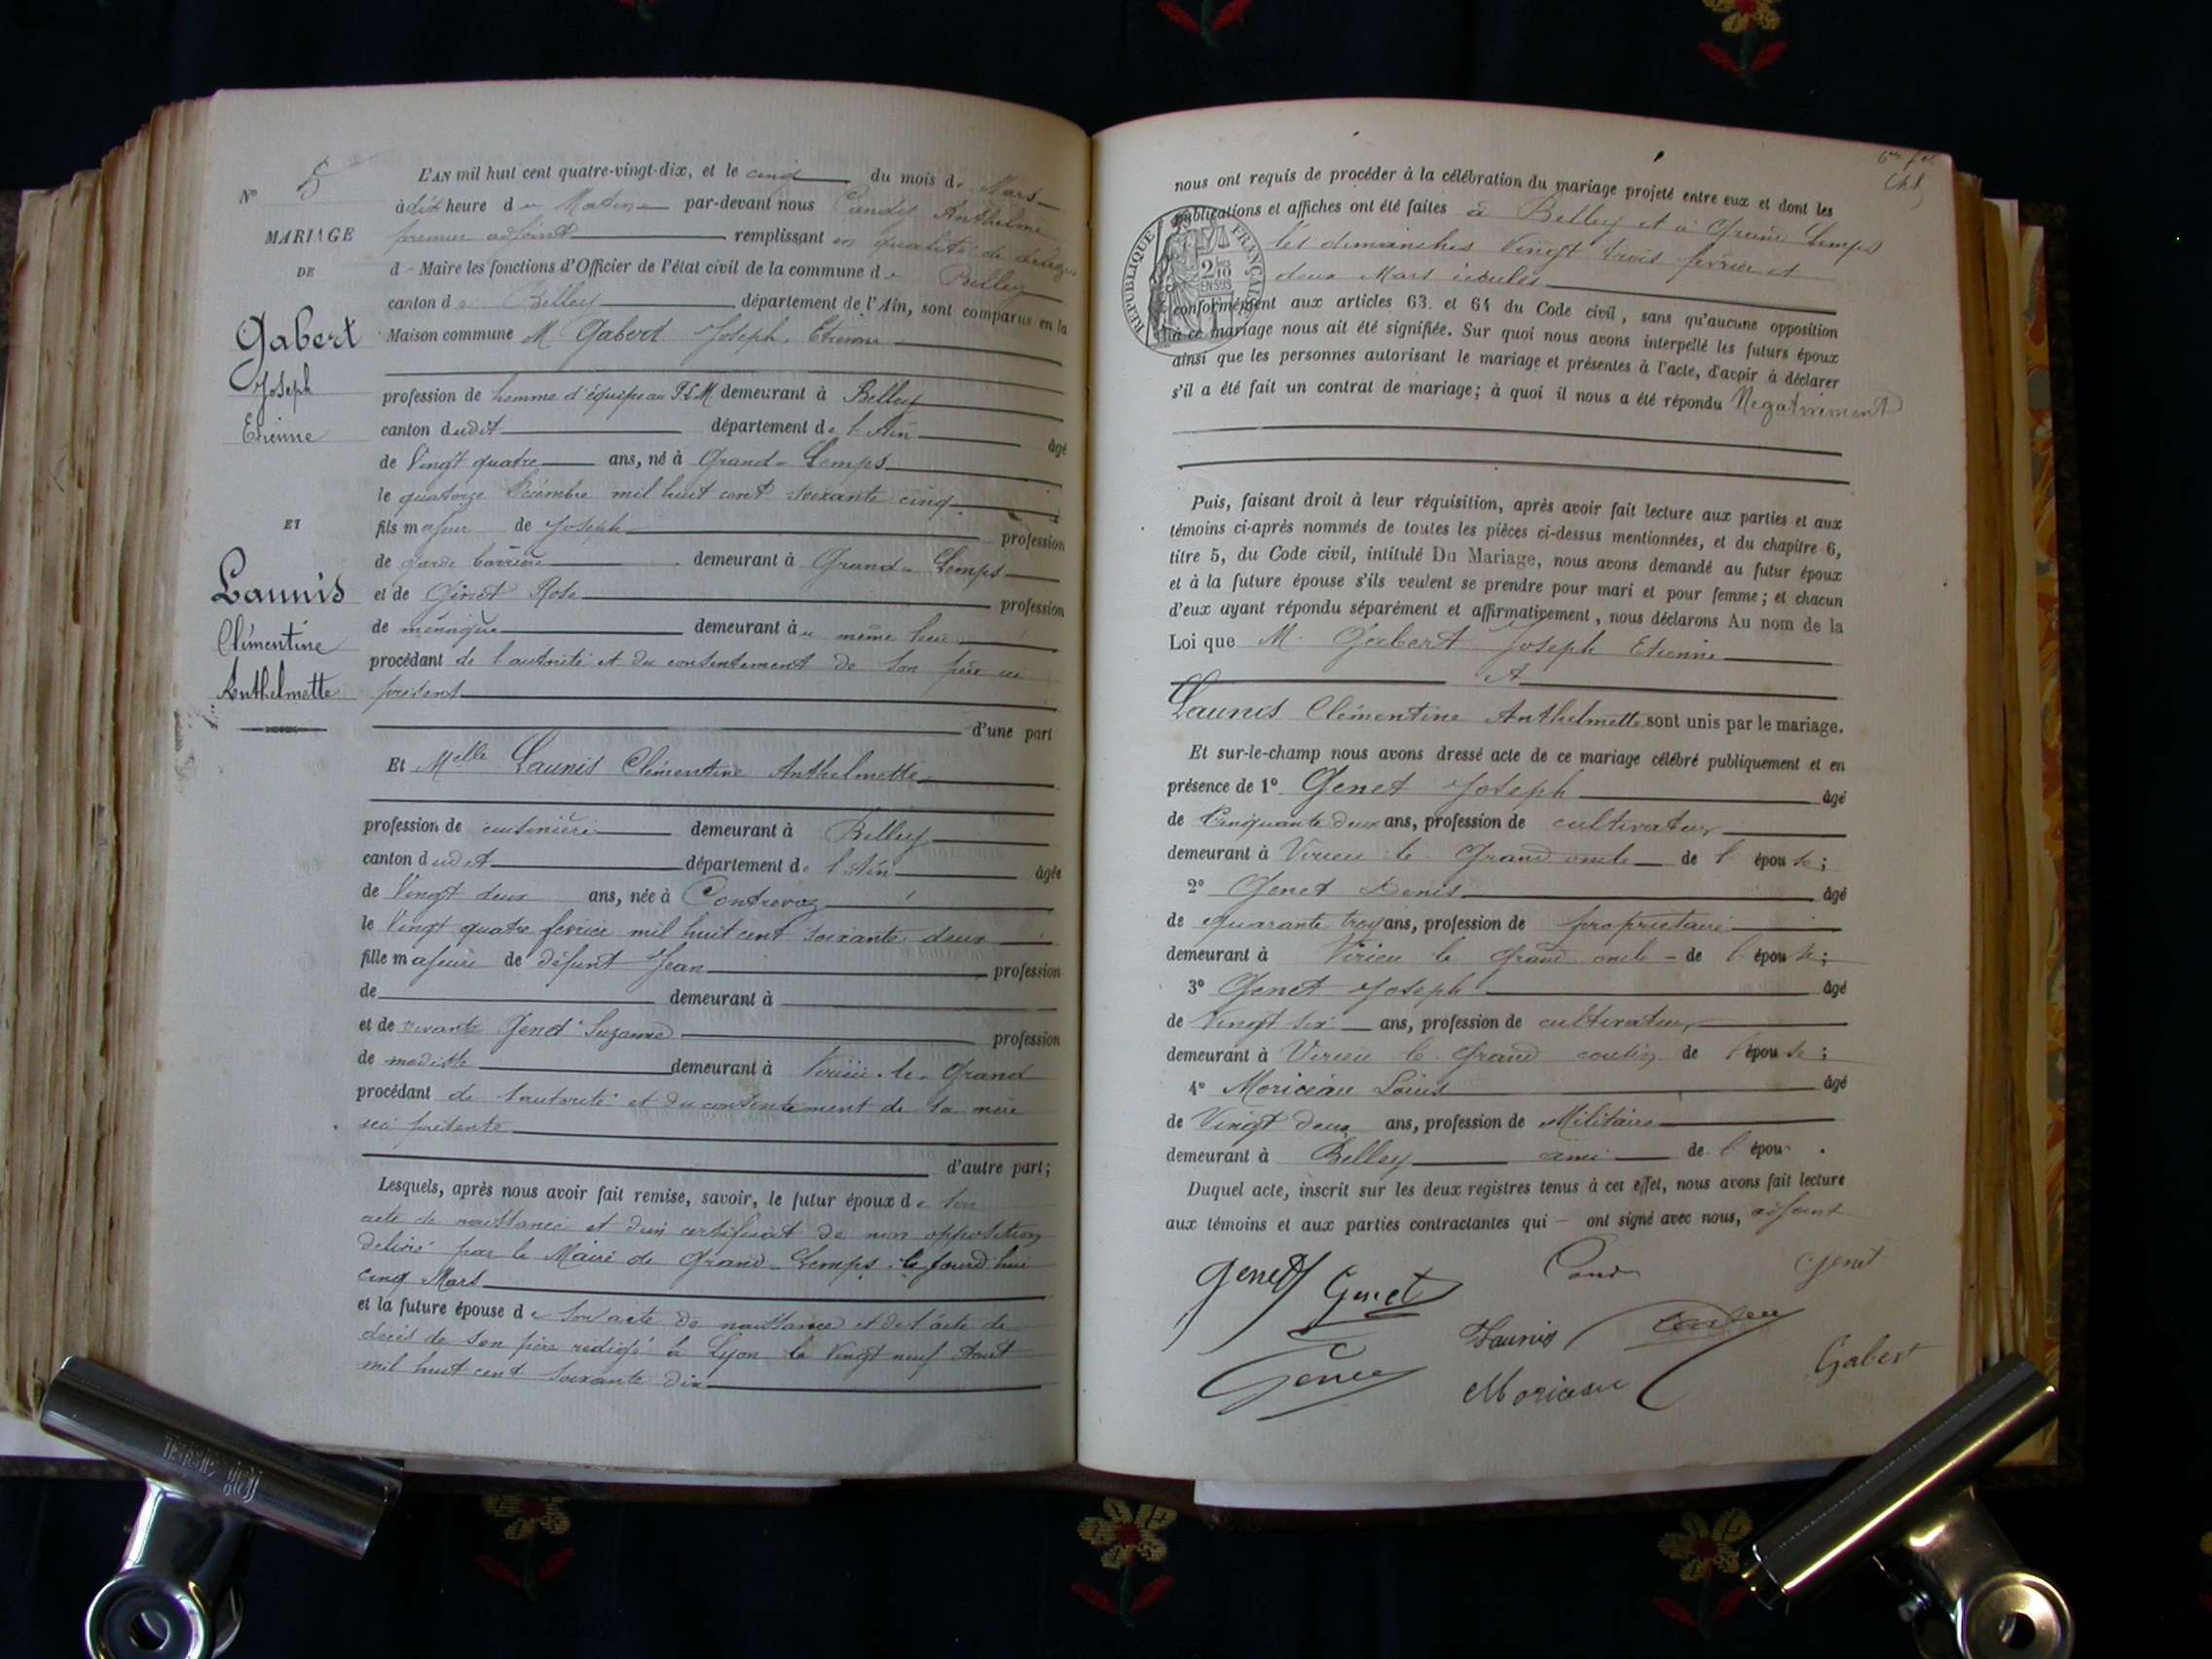 N° 5
MARIAGE
DE
Gabert
Joseph
Etienne
ET
Launis
Clémentine
Anthelmette
L'AN mil huit cent quatre-vingt-dix, et le cinq du mois de Mars
à dix heure du Matin par-devant nous Candy Anthelme
premier adjoint remplissant en qualité de délégué
d Maire les fonctions d'Officier de l'état civil de la commune de Belley
canton de Belley département de l'Ain, sont comparus en la
Maison commune M Gabert Joseph, Etienne
profession de homme d'équipe au PLM demeurant à Belley
canton dudit département de l'Ain âgé
de Vingt quatre ans, né à Grand-Lemps
le quatorze Décembre mil huit cent soixante cinq
fils majeur de Joseph profession
de garde barrière demeurant à Grand-Lemps
et de Ginet Rose profession
de ménagère demeurant au même lieu
procédant de l'autorité et du consentement de son père ici
présent
d'une part
Et Melle Launis Clémentine Anthelmette
profession de cuisinière demeurant à Belley
canton dudit département de l'Ain âgée
de Vingt deux ans, née à Contrevoz
le Vingt quatre février mil huit cent soixante deux
fille majeure de défunt Jean profession
de demeurant à
et de vivante Genet Suzanne profession
de modiste demeurant à Virieu-le-Grand
procédant de l'autorité et du consentement de sa mère
ici présente
d'autre part;
Lesquels, après nous avoir fait remise, savoir, le futur époux de son
acte de naissance et d'un certificat de non opposition
délivré par le Maire de Grand-Lemps, le jourd'hui
cinq Mars
et la future épouse de son acte de naissance et de l'acte de
décès de son père rédigé à Lyon le Vingt neuf Août
mil huit cent soixante dix
nous ont requis de procéder à la célébration du mariage projeté entre eux et dont les
publications et affiches ont été faites à Belley et à Grand Lemps
les dimanches Vingt trois février et
deux Mars écoulés
conformément aux articles 63. et 64 du Code civil, sans qu'aucune opposition
à ce mariage nous ait été signifiée. Sur quoi nous avons interpellé les futurs époux
ainsi que les personnes autorisant le mariage et présentes à l'acte, d'avoir à déclarer
s'il a été fait un contrat de mariage; à quoi il nous a été répondu Négativement
RÉPUBLIQUE FRANÇAISE
2/10
EN SUS
Puis, faisant droit à leur réquisition, après avoir fait lecture aux parties et aux
témoins ci-après nommés de toutes les pièces ci-dessus mentionnées, et du chapitre 6,
titre 5, du Code civil, intitulé Du Mariage, nous avons demandé au futur époux
et à la future épouse s'ils veulent se prendre pour mari et pour femme; et chacun
d'eux ayant répondu séparément et affirmativement, nous déclarons Au nom de la
Loi que M. Gabert Joseph Etienne
Et
Launis Clémentine Anthelmette sont unis par le mariage.
Et sur-le-champ nous avons dressé acte de ce mariage célébré publiquement et en
présence de 1° Genet Joseph âgé
de Cinquante deux ans, profession de cultivateur
demeurant à Virieu le Grand oncle de l'épouse;
2° Genet Denis âgé
de quarante trois ans, profession de propriétaire
demeurant à Virieu le Grand oncle de l'épouse;
3° Genet Joseph âgé
de Vingt six ans, profession de cultivateur
demeurant à Virieu le Grand cousin de l'épouse;
4° Moriceau Louis âgé
de Vingt deux ans, profession de Militaire
demeurant à Belley ami de l'époux.
Duquel acte, inscrit sur les deux registres tenus à cet effet, nous avons fait lecture
aux témoins et aux parties contractantes qui ont signé avec nous, adjoint
Genet Genet Genet
Launis
Genet Moriceau Gabert